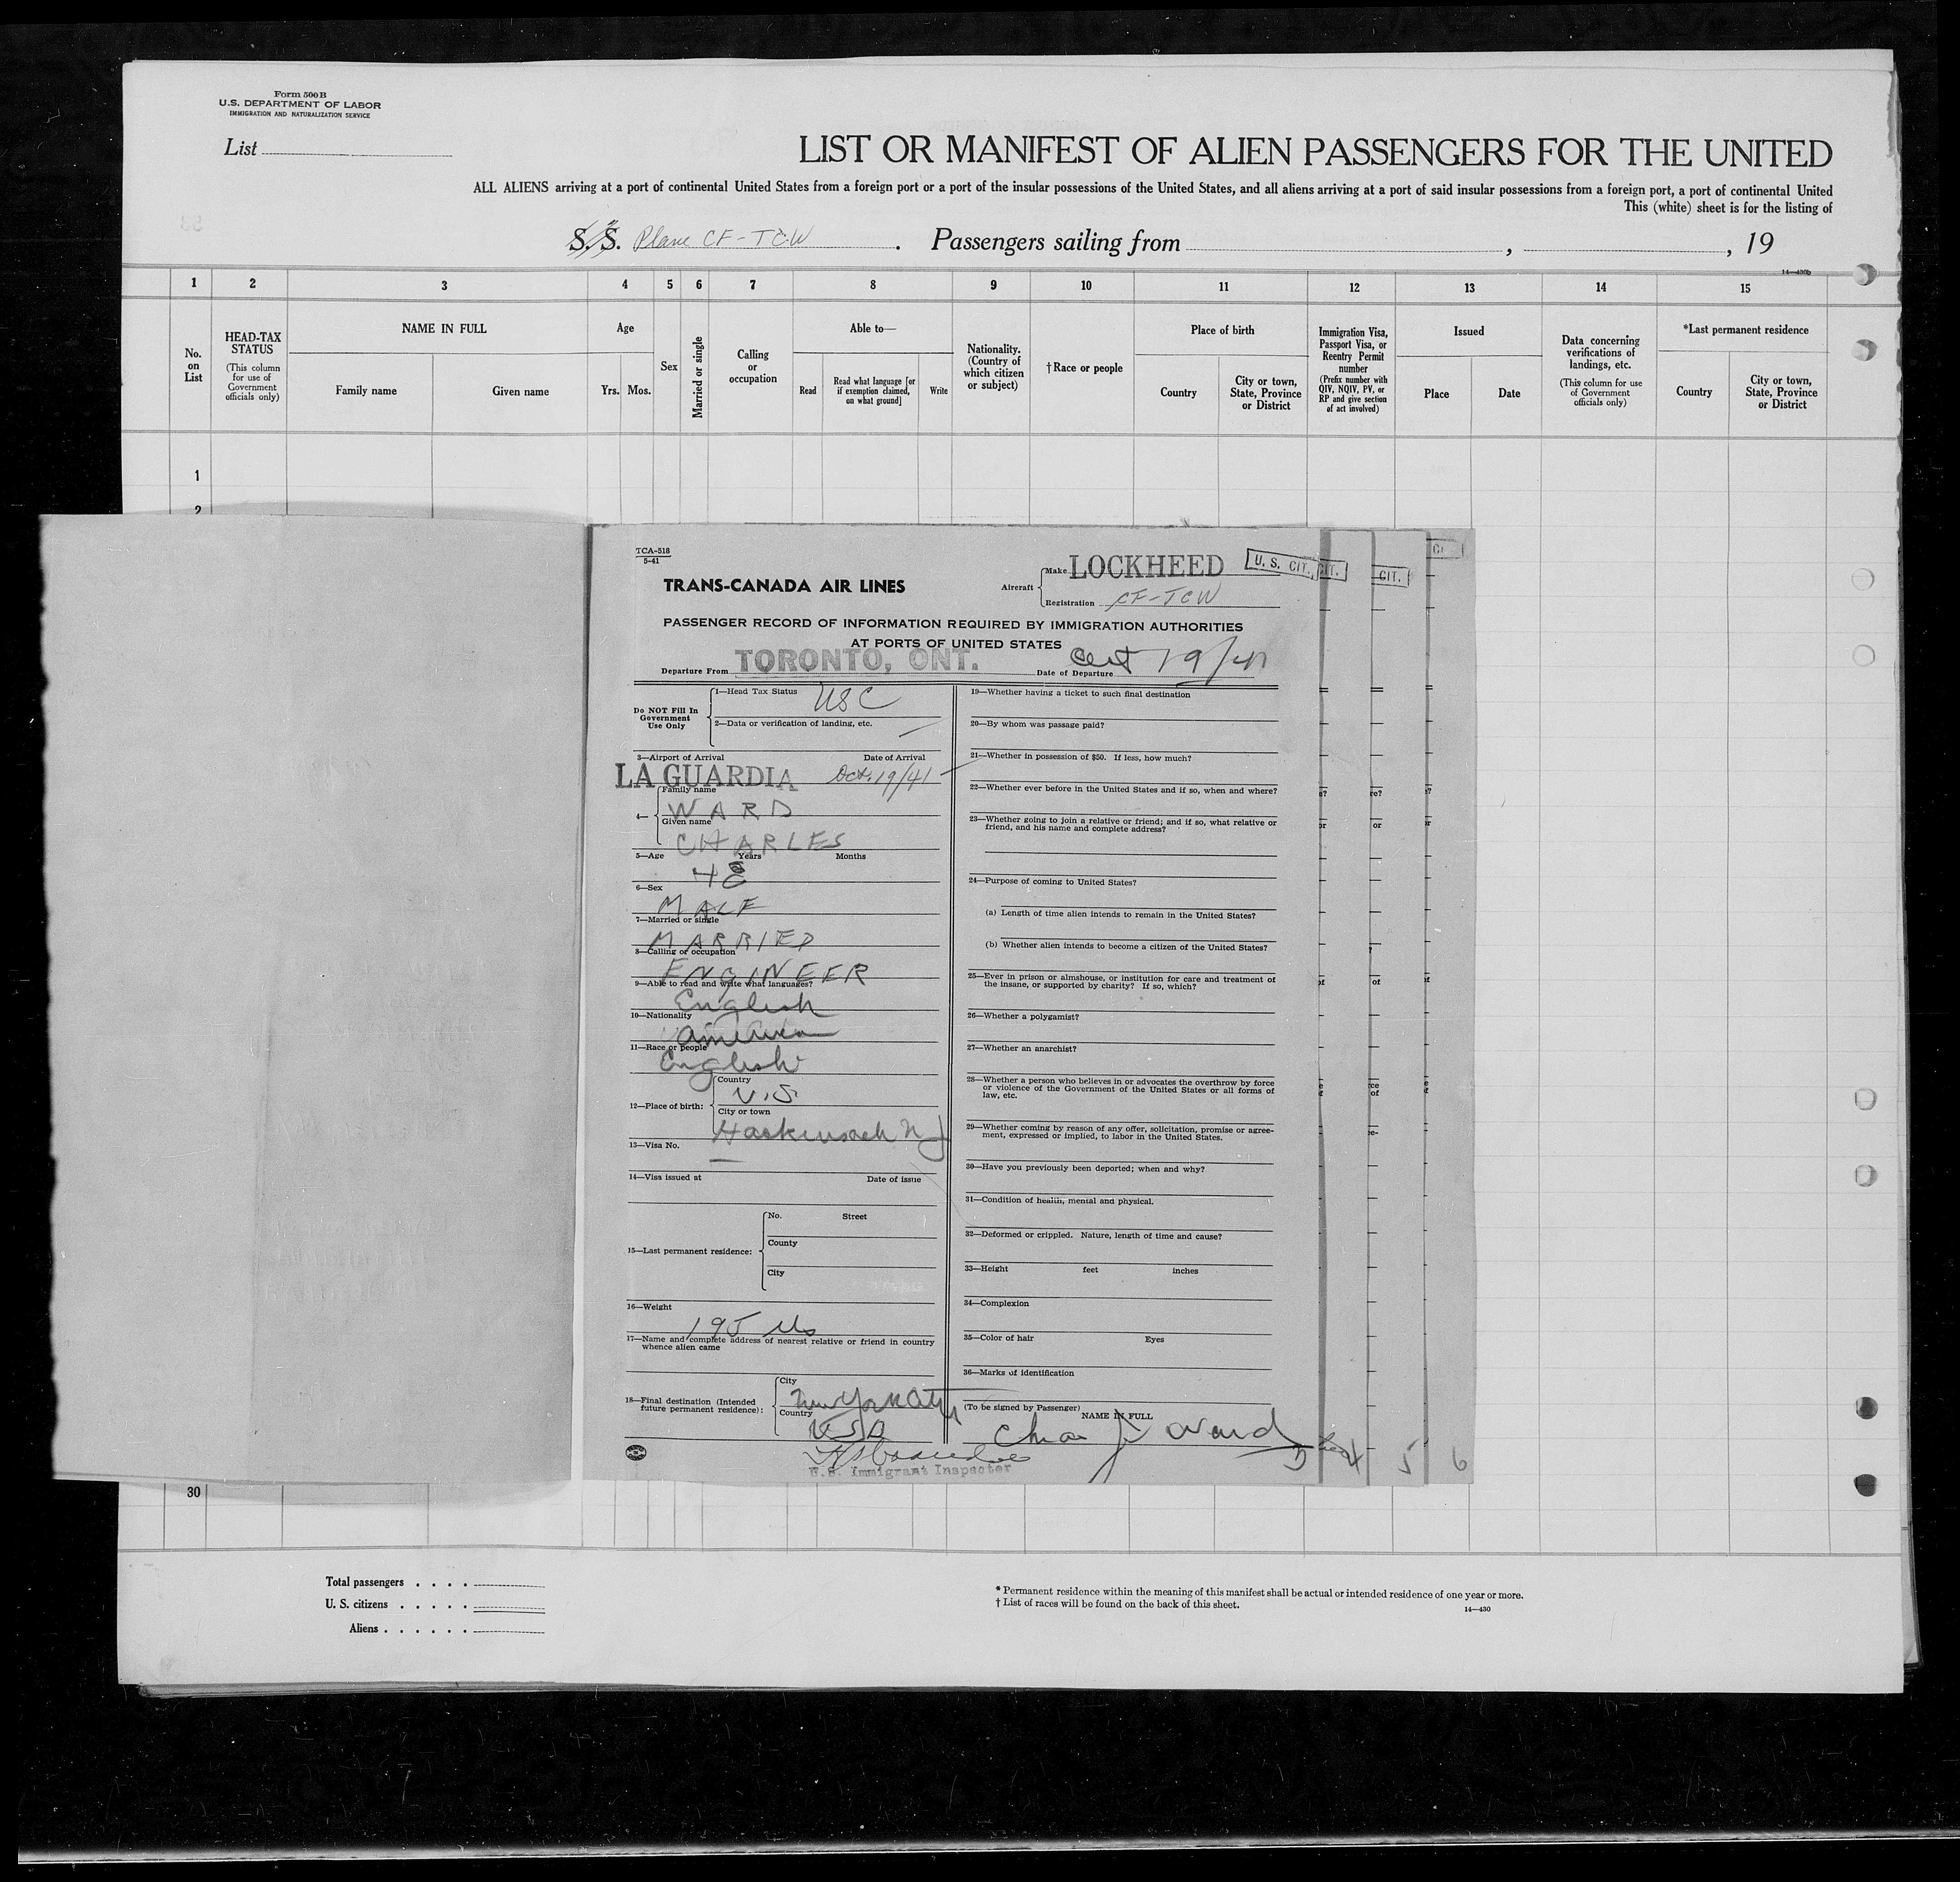 Form 500B
U.S. DEPARTMENT OF LABOR
IMMIGRATION AND NATURALIZATION SERVICE
List
LIST OR MANIFEST OF ALIEN PASSENGERS FOR THE UNITED
ALL ALIENS arriving at a port of continental United States from a foreign port or a port of the insular possessions of the United States, and all aliens arriving at a port of said insular possessions from a foreign port, a port of continental United
This (white) sheet is for the listing of
S.S. Plane CF-TCW. Passengers sailing from , , 19
14—430b
1 2 3 4 5 6 7 8 9 10 11 12 13 14 15
No. on List
HEAD-TAX STATUS
(This column for use of Government officials only)
NAME IN FULL
Family name
Given name
Age
Yrs.
Mos.
Sex
Married or single
Calling or occupation
Able to—
Read
Read what language [or if exemption claimed, on what ground]
Write
Nationality. (Country of which citizen or subject)
†Race or people
Place of birth
Country
City or town, State, Province or District
Immigration Visa, Passport Visa, or Reentry Permit number
(Prefix number with QIV, NQIV, PV, or RP and give section of act involved)
Issued
Place
Date
Data concerning verifications of landings, etc.
(This column for use of Government officials only)
*Last permanent residence
Country
City or town, State, Province or District
1
2
TCA-518
5-41
TRANS-CANADA AIR LINES
Aircraft
Make LOCKHEED
Registration CF-TCW
U. S. CIT.
CIT.
CIT.
PASSENGER RECORD OF INFORMATION REQUIRED BY IMMIGRATION AUTHORITIES
AT PORTS OF UNITED STATES
Departure From TORONTO, ONT. Date of Departure Oct 19/41
Do NOT Fill In Government Use Only
1—Head Tax Status USC
2—Data or verification of landing, etc.
3—Airport of Arrival Date of Arrival
LA GUARDIA Oct. 19/41
4— Family name
WARD
Given name
CHARLES
5—Age Years Months
48
6—Sex
MALE
7—Married or single
MARRIED
8—Calling or occupation
ENGINEER
9—Able to read and write what languages?
English
10—Nationality
American
11—Race or people
English
12—Place of birth:
Country
U.S.
City or town
Hackensack N J
13—Visa No.
14—Visa issued at Date of issue
15—Last permanent residence:
No. Street
County
City
16—Weight
195 lbs
17—Name and complete address of nearest relative or friend in country whence alien came
18—Final destination (Intended future permanent residence):
City
New York City
Country
USA
U.S. Immigrant Inspector
19—Whether having a ticket to such final destination
20—By whom was passage paid?
21—Whether in possession of $50. If less, how much?
22—Whether ever before in the United States and if so, when and where?
23—Whether going to join a relative or friend; and if so, what relative or
friend, and his name and complete address?
24—Purpose of coming to United States?
(a) Length of time alien intends to remain in the United States?
(b) Whether alien intends to become a citizen of the United States?
25—Ever in prison or almshouse, or institution for care and treatment of
the insane, or supported by charity? If so, which?
26—Whether a polygamist?
27—Whether an anarchist?
28—Whether a person who believes in or advocates the overthrow by force
or violence of the Government of the United States or all forms of
law, etc.
29—Whether coming by reason of any offer, solicitation, promise or agree-
ment, expressed or implied, to labor in the United States.
30—Have you previously been deported; when and why?
31—Condition of health, mental and physical.
32—Deformed or crippled. Nature, length of time and cause?
33—Height feet inches
34—Complexion
35—Color of hair Eyes
36—Marks of identification
(To be signed by Passenger)
NAME IN FULL
Chas J. Ward
3 4 5 6
30
Total passengers
U. S. citizens
Aliens
* Permanent residence within the meaning of this manifest shall be actual or intended residence of one year or more.
† List of races will be found on the back of this sheet.
14—430